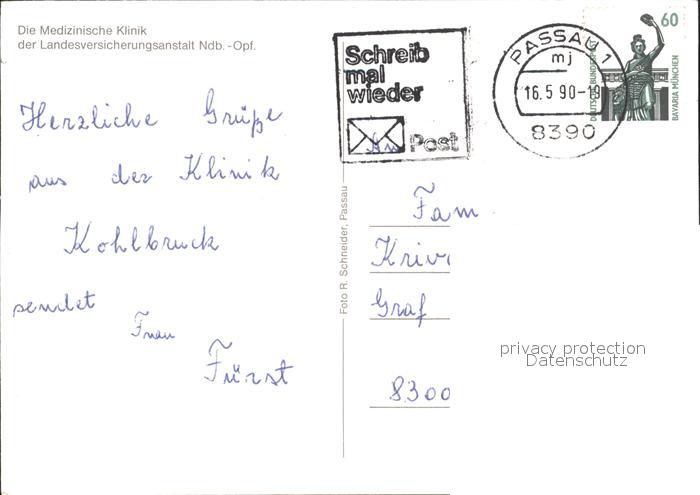 Die Medizinische Klinik
der Landesversicherungsanstalt Ndb.-Opf.
Herzliche Grüße
aus der Klinik
Kohlbruck
sendet
Frau
Fürst
Foto R. Schneider, Passau
Schreib
mal
wieder
Post
PASSAU 1
mj
16.5 90-19
8390
60
DEUTSCHE BUNDESPOST
BAVARIA MÜNCHEN
An
Fam
Kriv
Graf
8300
privacy protection
Datenschutz